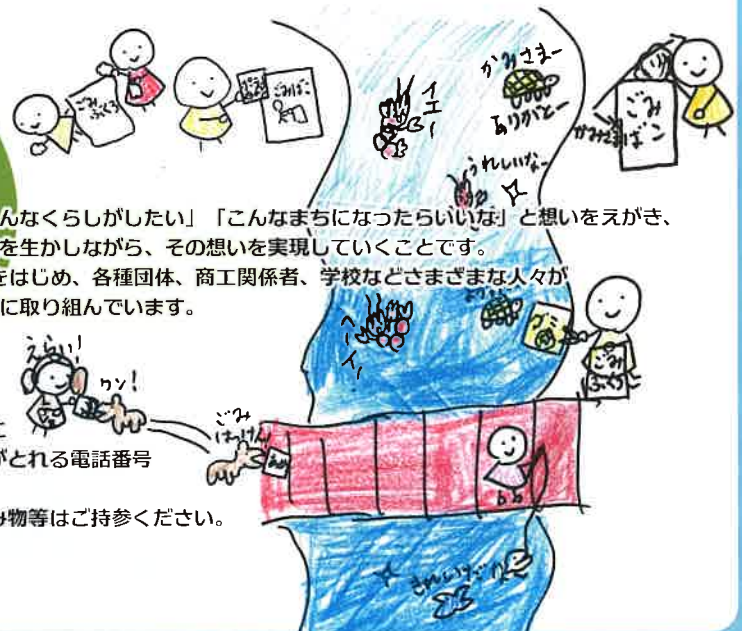 ごみ
ぶくろ
ごみばこ
イエー
かみさまー
ありがとー
ごみ
うれしいなー
んなくらしがしたい」「こんなまちになったらいいな」と想いをえがき、
を生かしながら、その想いを実現していくことです。
をはじめ、各種団体、商工関係者、学校などさまざまな人々が
に取り組んでいます。
ヘーイ
ごみ
ぶくろ
えらい!
ワン!
ごみ
はっけん!
がとれる電話番号
み物等はご持参ください。